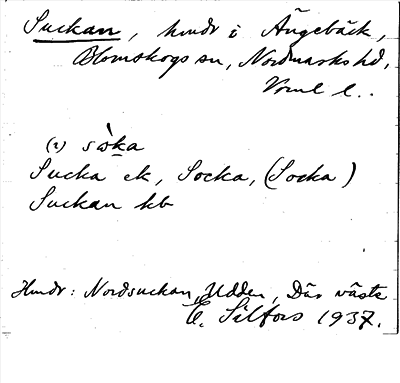 Suckan, hmdr i Ängebäck,
Blomskogs sn, Nordmarks hd,
Vrml l..
(2) sòka
Sucka ek, Socka, (Socka)
Suckan kb
Hmdr: Nordsuckan, Udden, Där väste
E. Silfors 1937.